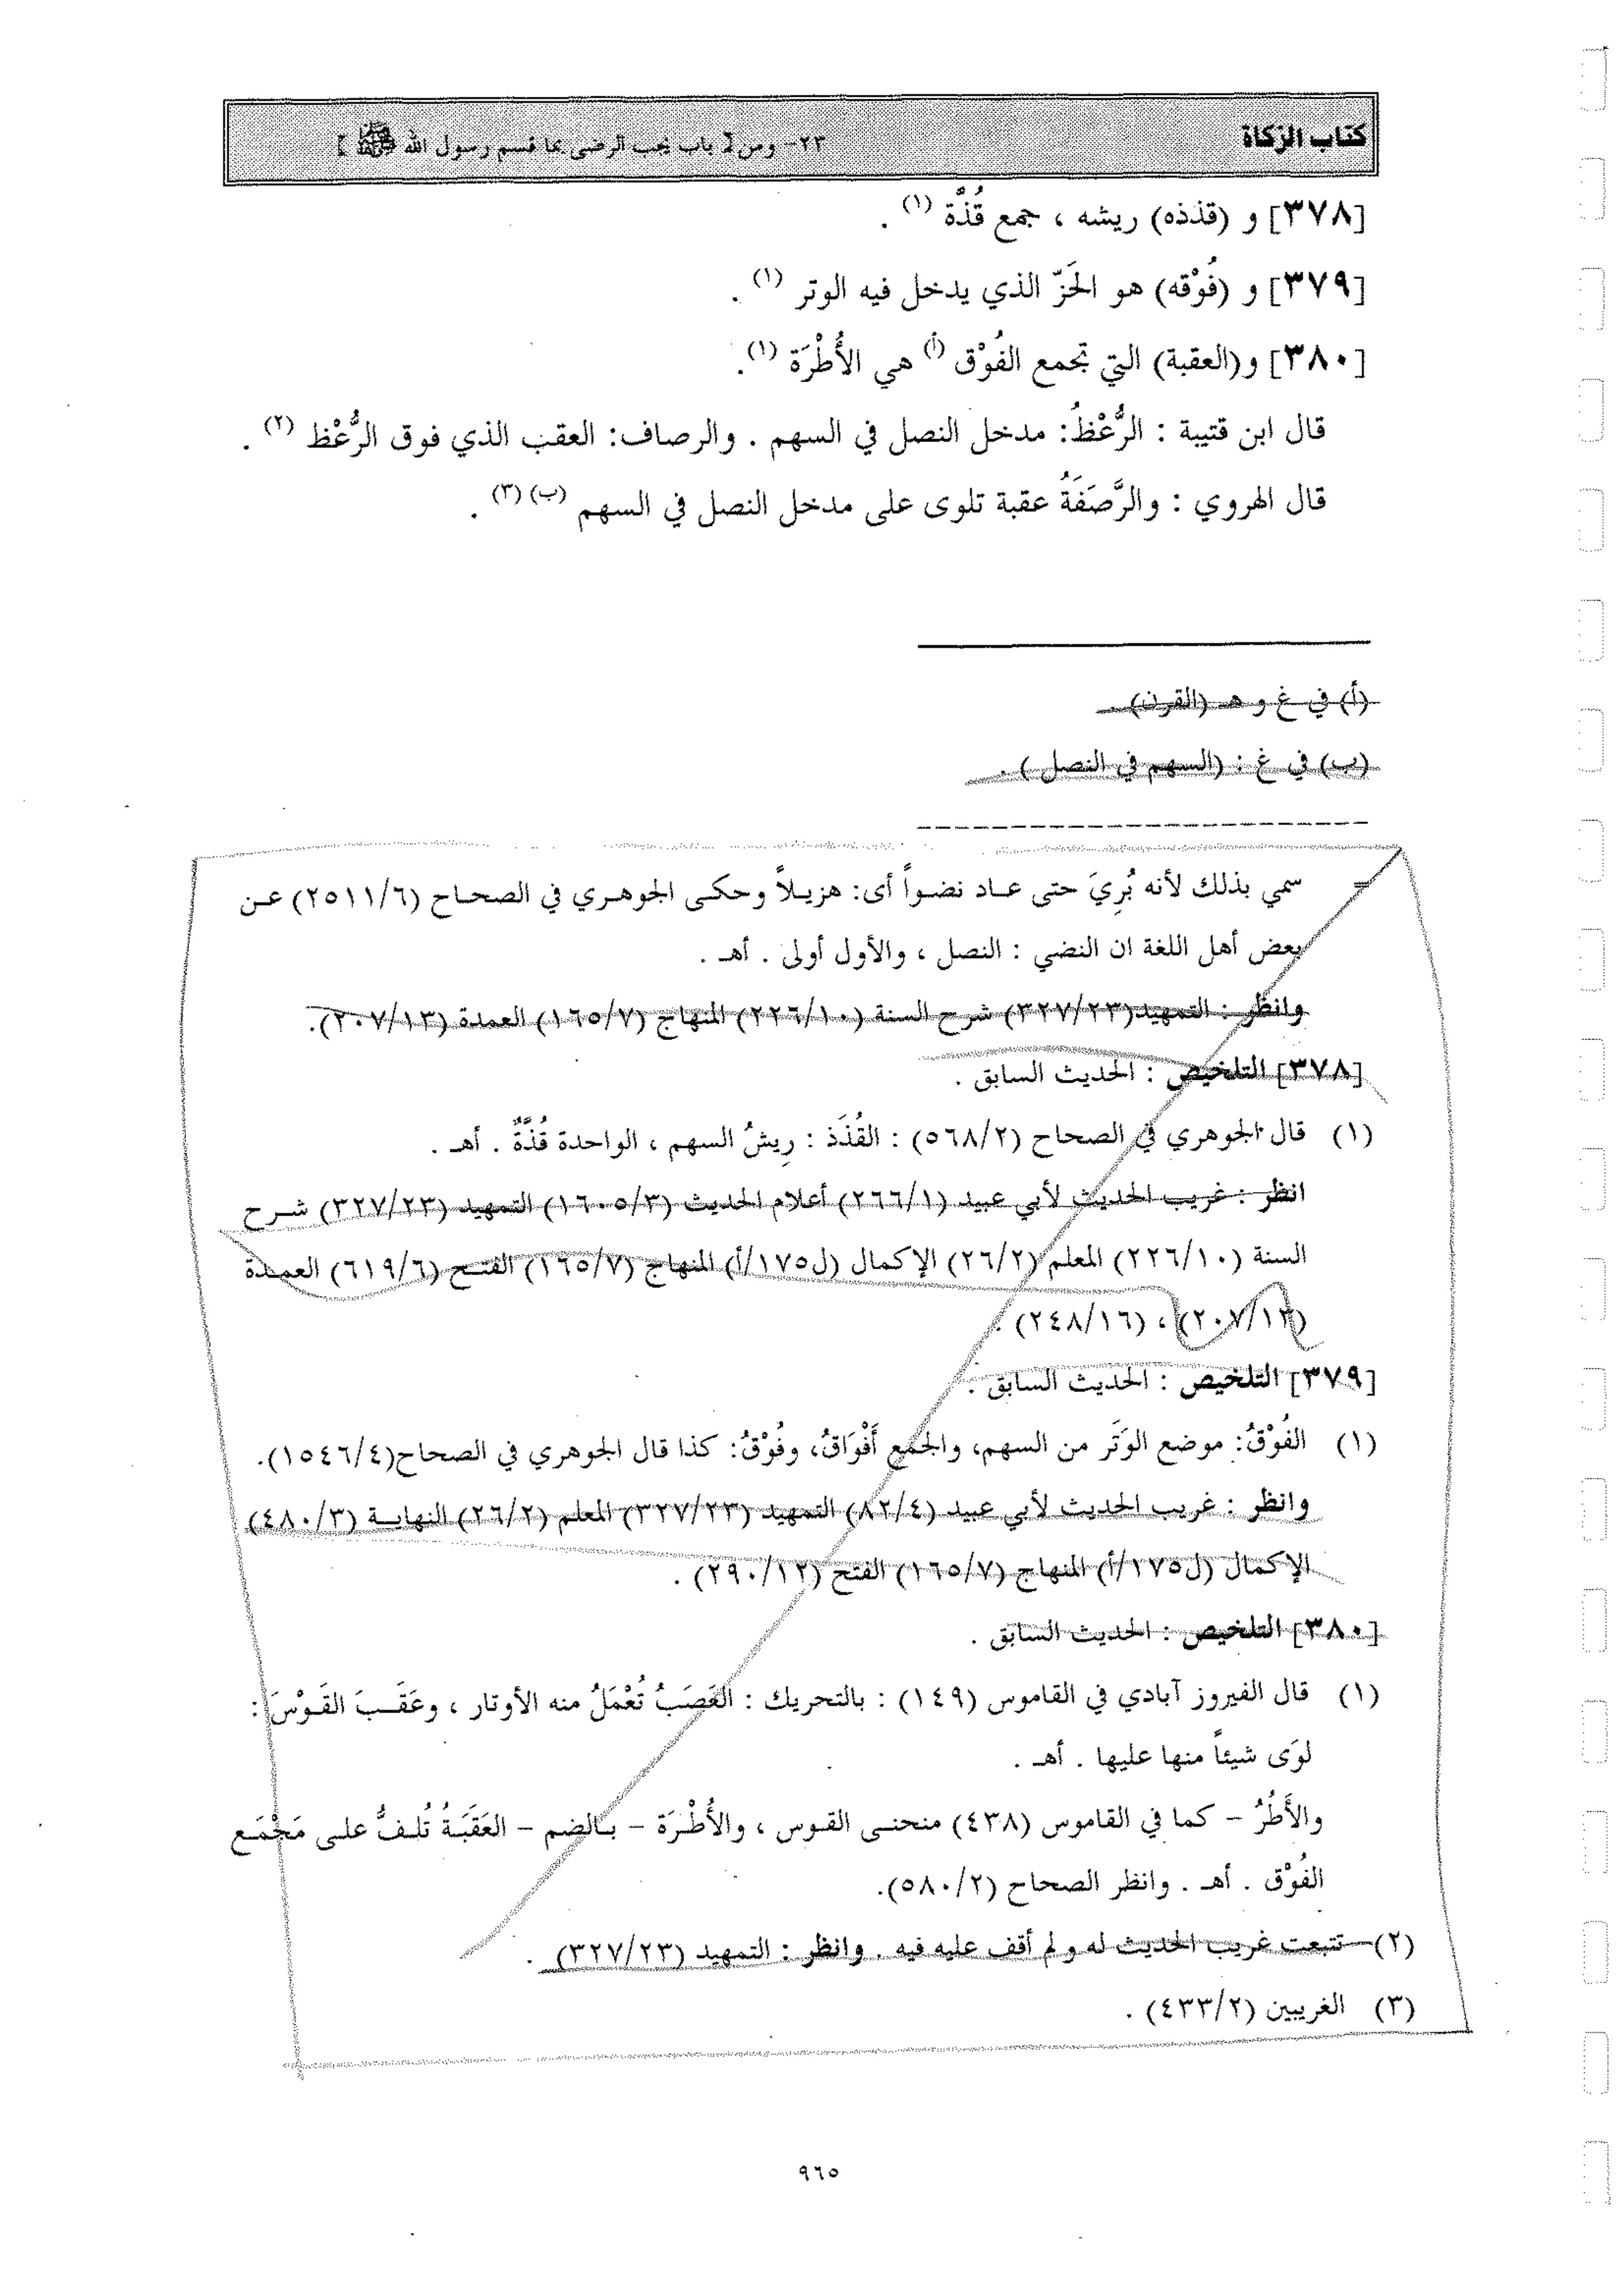 كتاب الزكاة
٢٣- ومن [ باب يجب الرضى بما قسم رسول الله ﷺ ]
[٣٧٨] و (قذذه) ريشه ، جمع قُذَّة (١) .
[٣٧٩] و (فُوْقه) هو الحَزّ الذي يدخل فيه الوتر (١) .
[٣٨٠] و(العقبة) التي تجمع الفُوْق (أ) هي الأُطْرَة (١).
قال ابن قتيبة : الرُّعْظُ: مدخل النصل في السهم . والرصاف: العقب الذي فوق الرُّعْظ (٢) .
قال الهروي : والرَّصَفَةُ عقبة تلوى على مدخل النصل في السهم (ب) (٣) .
(أ) في غ و هـ (القرن) .
(ب) في غ : (السهم في النصل ) .
= سمي بذلك لأنه بُرِيَ حتى عـاد نضـواً أى: هزيـلاً وحكـى الجوهـري في الصحـاح (٢٥١١/٦) عـن
بعض أهل اللغة ان النضي : النصل ، والأول أولى . أهـ .
وانظر : التمهيد(٣٢٧/٢٣) شرح السنة (٢٢٦/١٠) المنهاج (١٦٥/٧) العمدة (٢٠٧/١٣).
[٣٧٨] التلخيص : الحديث السابق .
(١) قال الجوهري في الصحاح (٥٦٨/٢) : القُذَذ : رِيشُ السهم ، الواحدة قُذَّةٌ . أهـ .
انظر : غريب الحديث لأبي عبيد (٢٦٦/١) أعلام الحديث (١٦٠٥/٣) التمهيد (٣٢٧/٢٣) شـرح
السنة (٢٢٦/١٠) المعلم (٢٦/٢) الإكمال (ل١٧٥/أ) المنهاج (١٦٥/٧) الفتـح (٦١٩/٦) العمـدة
(٢٠٧/١٣) ، (٢٤٨/١٦) .
[٣٧٩] التلخيص : الحديث السابق .
(١) الفُوْقُ: موضع الوَتَر من السهم، والجمع أَفْوَاقُ، وفُوْقُ: كذا قال الجوهري في الصحاح(١٥٤٦/٤).
وانظر : غريب الحديث لأبي عبيد (٨٢/٤) التمهيد (٣٢٧/٢٣) المعلم (٢٦/٢) النهايـة (٤٨٠/٣)
الإكمال (ل١٧٥/أ) المنهاج (١٦٥/٧) الفتح (٢٩٠/١٢) .
[٣٨٠] التلخيص : الحديث السابق .
(١) قال الفيروز آبادي في القاموس (١٤٩) : بالتحريك : العَصَبُ تُعْمَلُ منه الأوتار ، وعَقَـبَ القَـوْسَ :
لوَى شيئاً منها عليها . أهـ .
والأَطْرُ - كما في القاموس (٤٣٨) منحنـى القـوس ، والأُطْـرَة - بـالضم - العَقَبَـةُ تُلـفُّ علـى مَجْمَـع
الفُوْق . أهـ . وانظر الصحاح (٥٨٠/٢).
(٢) تتبعت غريب الحديث له و لم أقف عليه فيه . وانظر : التمهيد (٣٢٧/٢٣) .
(٣) الغريبين (٤٣٣/٢) .
٩٦٥